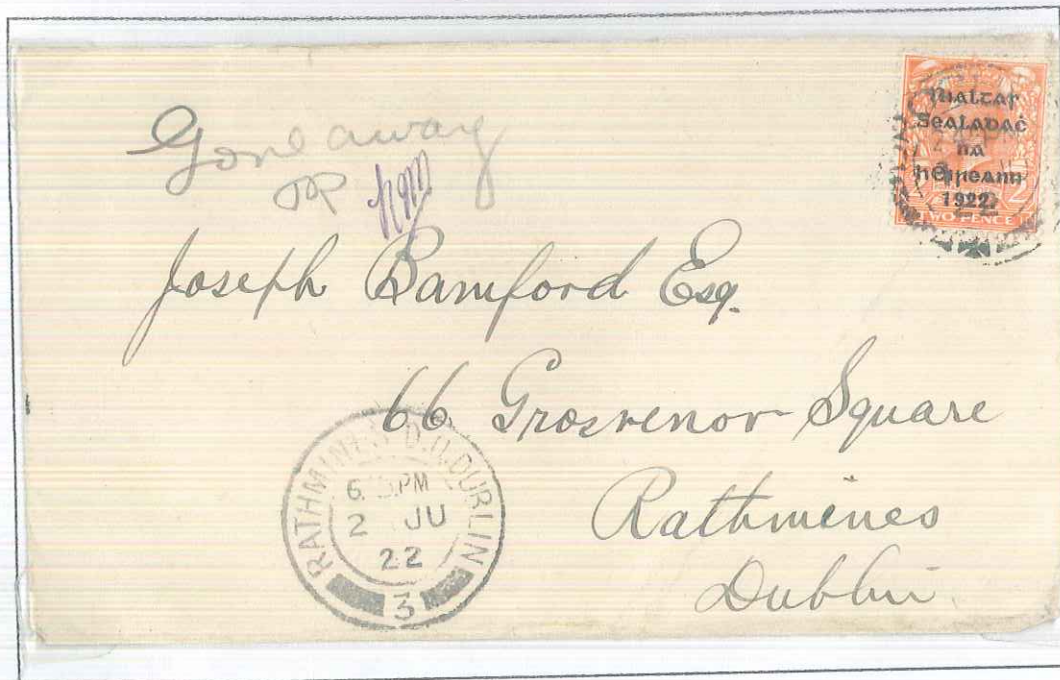 Gone away
Rialtas
Sealadaċ
na
hÉireann
1922
TWO PENCE
Joseph Bamford Esq.
66 Grosvenor Square
Rathmines
Dublin.
RATHMINES D.O. DUBLIN
PM
2 JU
22
3